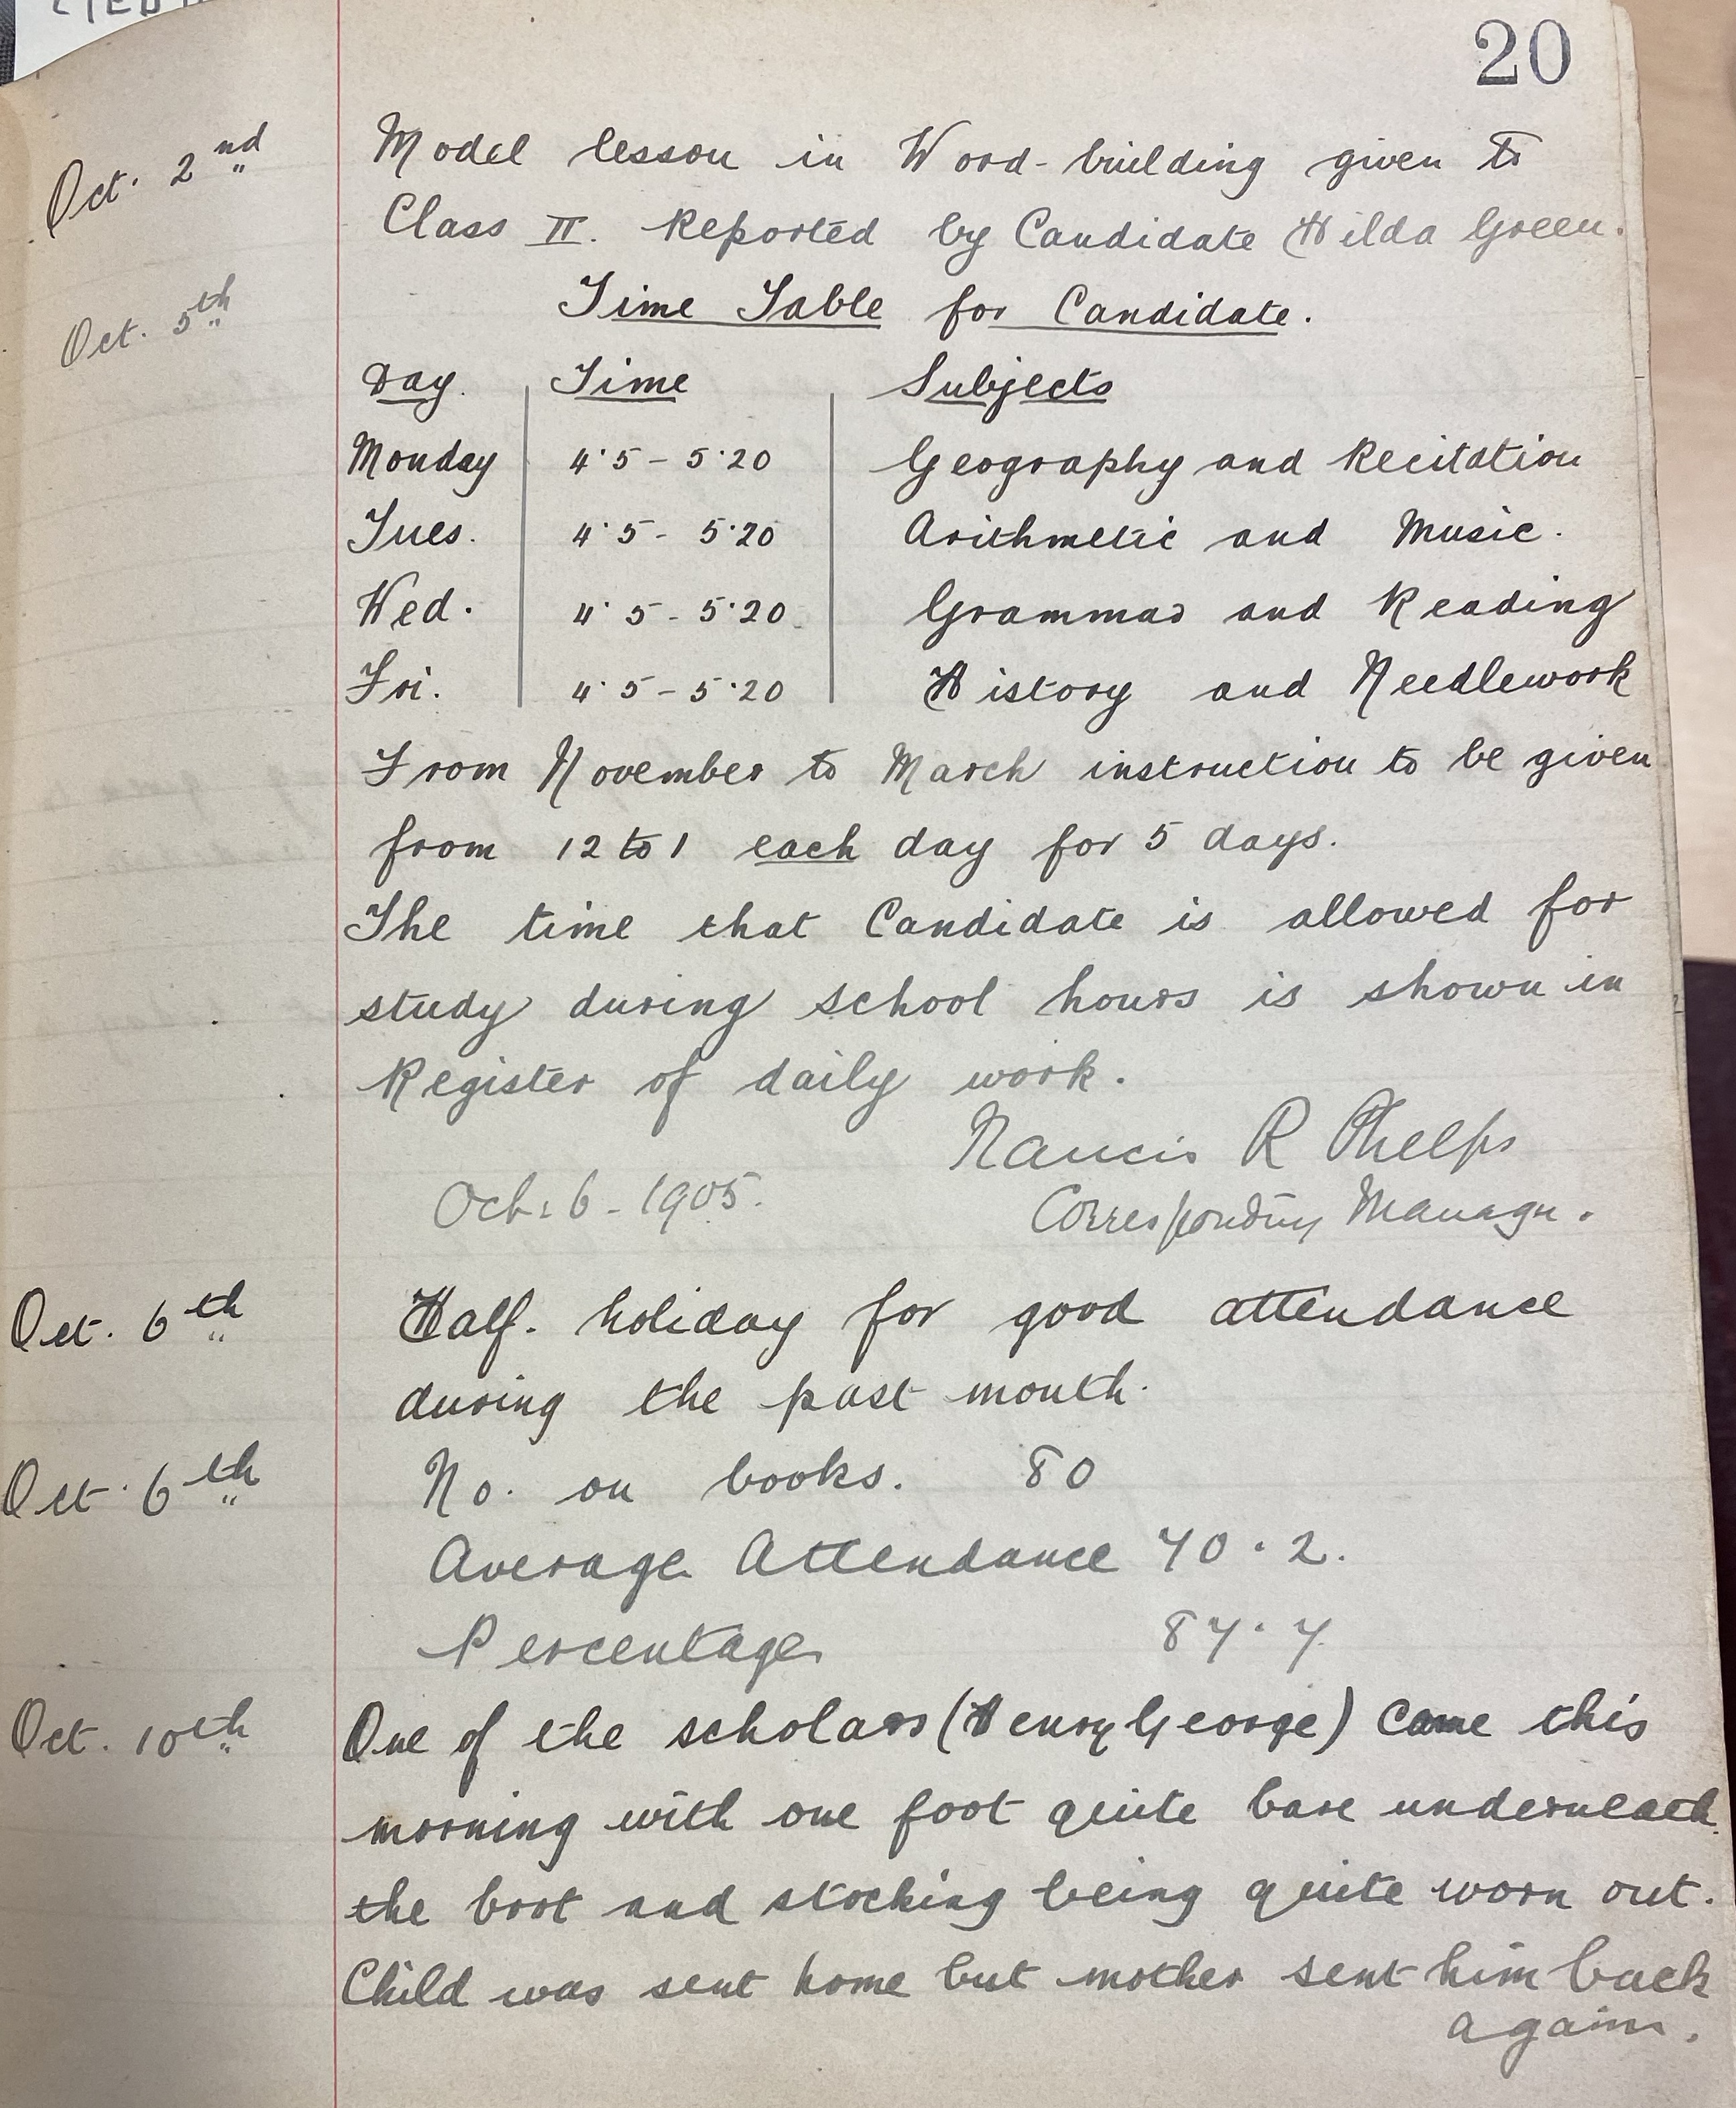 20
Oct. 2nd Model lesson in Word-building given to
Class II. Reported by Candidate Hilda Green.
Oct. 5th Time Table for Candidate.
Day. Time Subjects
Monday 4·5 - 5·20 Geography and Recitation
Tues. 4·5 - 5·20 Arithmetic and Music.
Wed. 4·5 - 5·20 Grammar and Reading
Fri. 4·5 - 5·20 History and Needlework
From November to March instruction to be given
from 12 to 1 each day for 5 days.
The time that Candidate is allowed for
study during school hours is shown in
Register of daily work.
R Phelps
Oct: 6 - 1905. Corresponding Manager.
Oct. 6th Half-holiday for good attendance
during the past month.
Oct. 6th No. on books. 80
Average Attendance 70·2.
Percentage 87·7
Oct. 10th One of the scholars (Henry George) came this
morning with one foot quite bare underneath
the boot and stocking being quite worn out.
Child was sent home but mother sent him back
again.